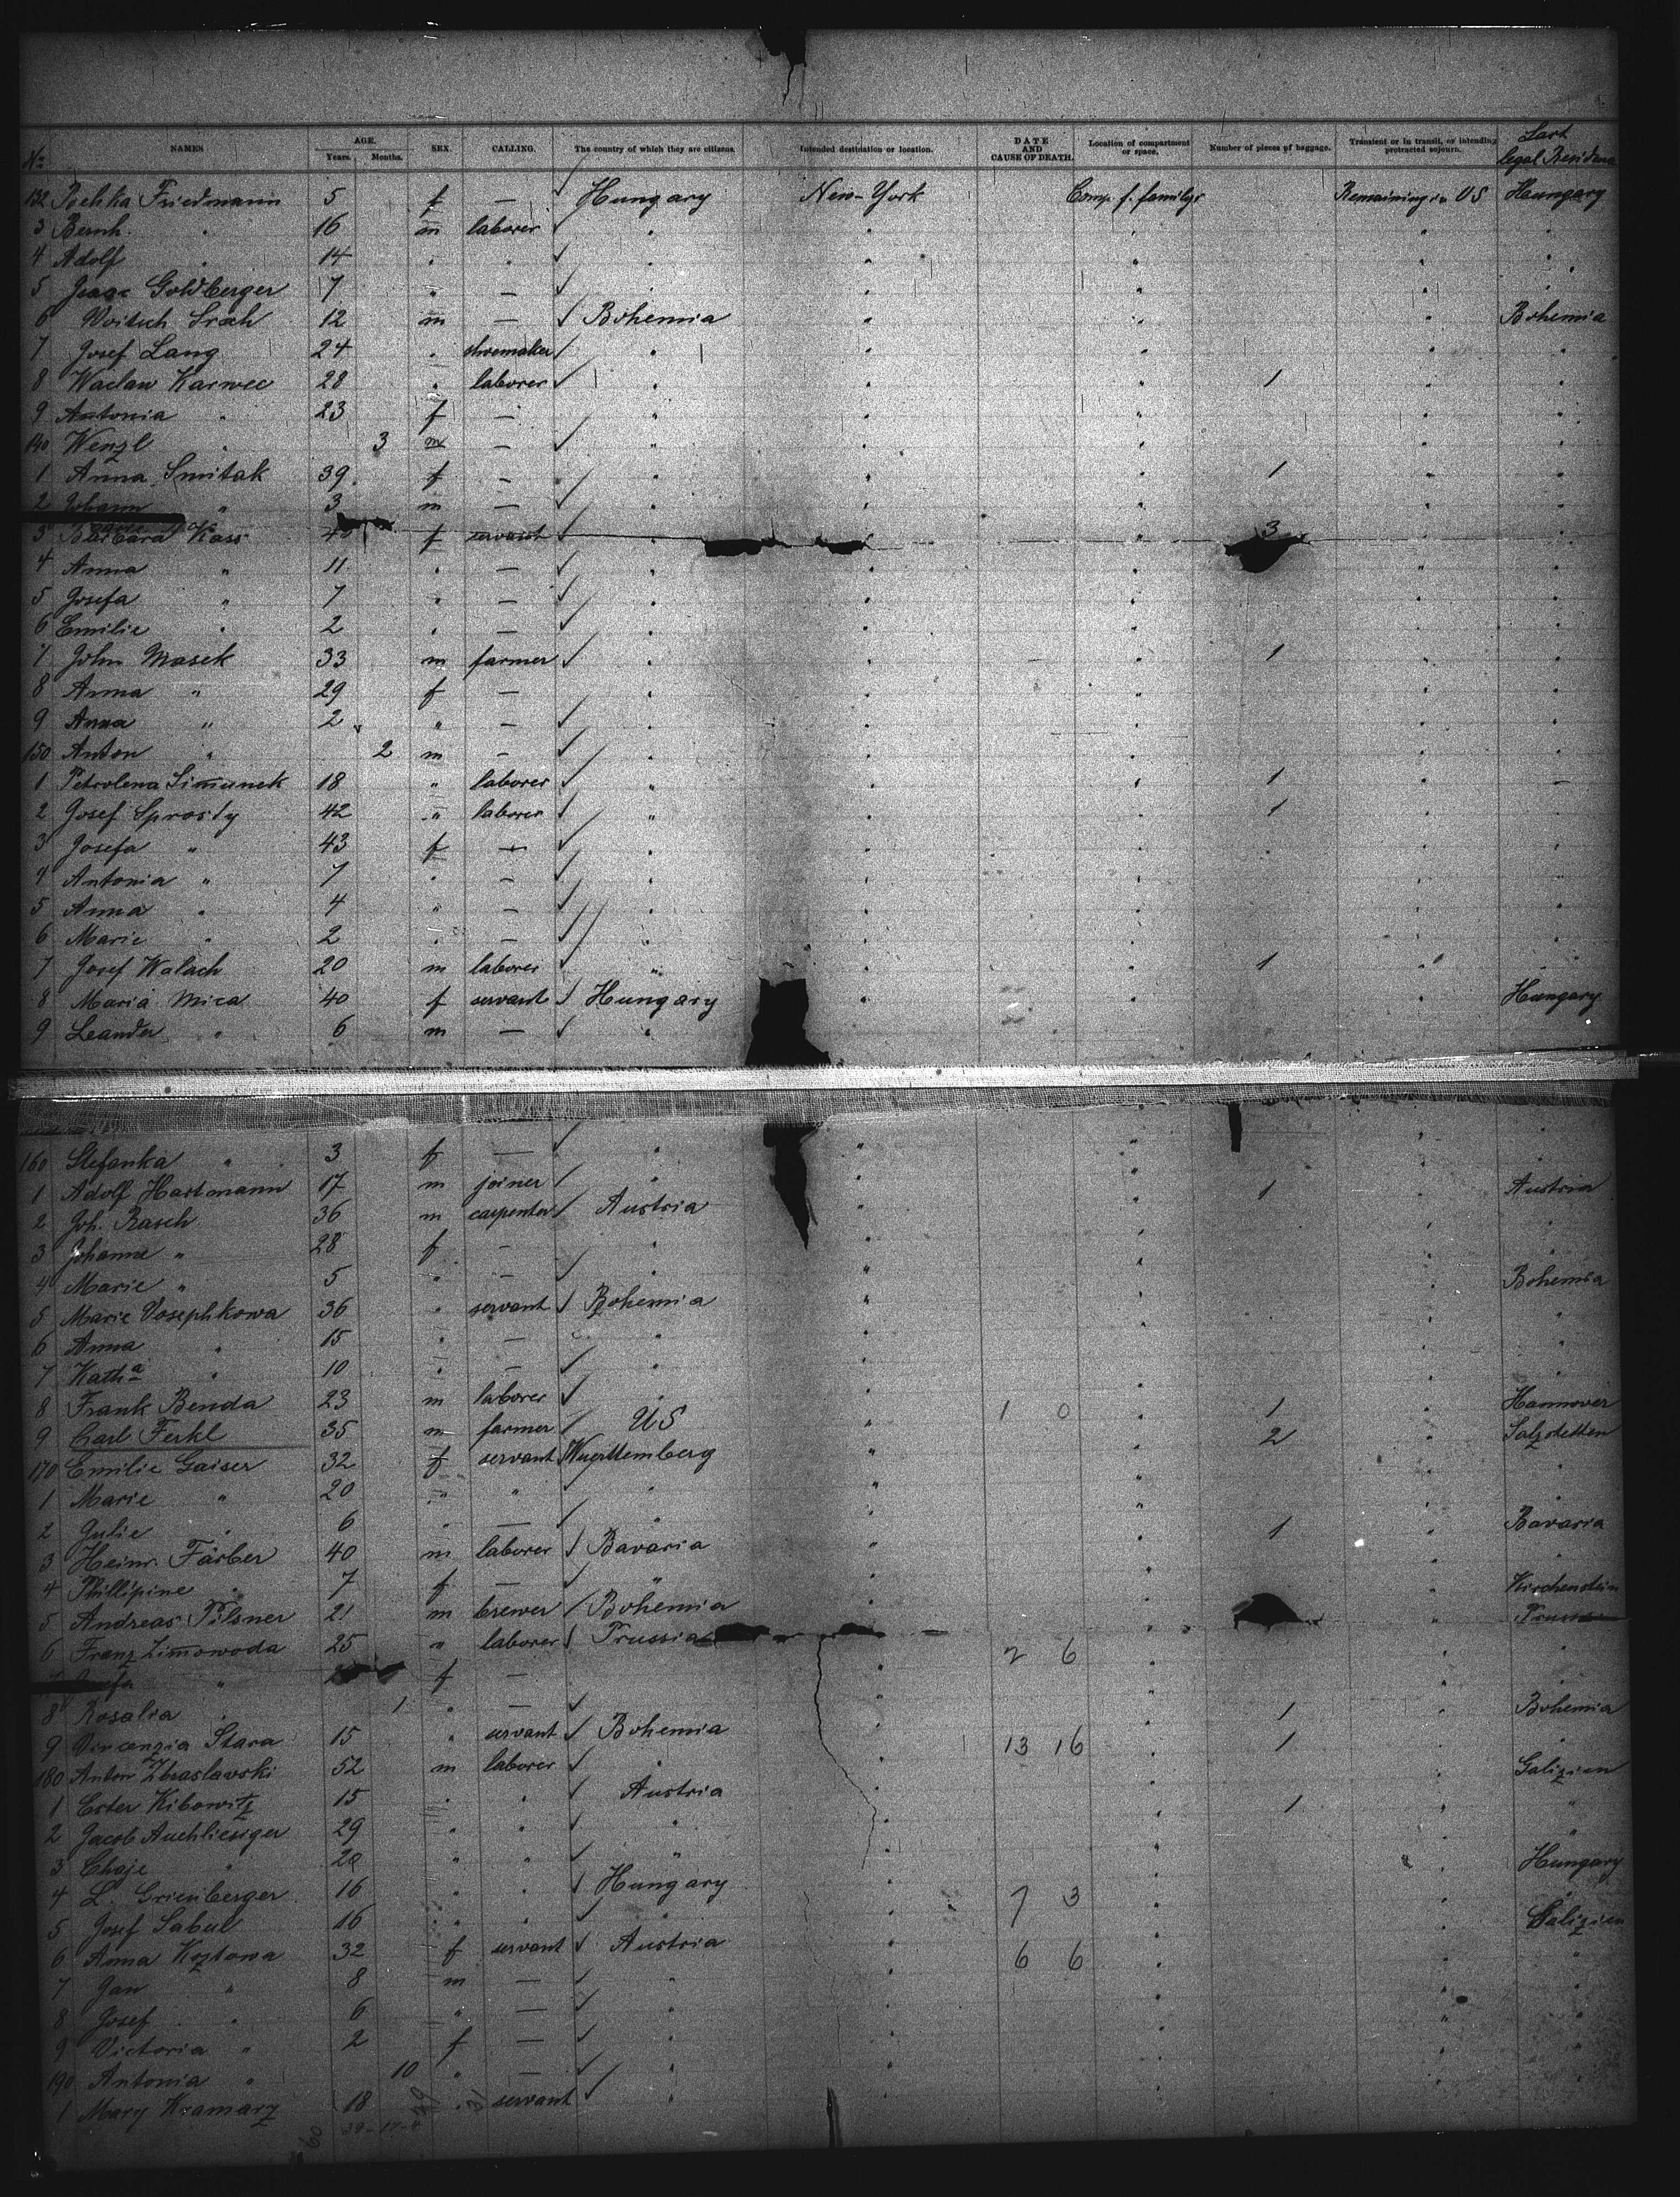 No. NAMES AGE. Years. Months. SEX. CALLING. The country of which they are citizens. Intended destination or location. DATE AND CAUSE OF DEATH. Location of compartment or space. Number of pieces of baggage. Transient or in transit, or intending protracted sojourn. Last legal Residence
132 Friedmann 5 f — Hungary New-York Comp. f. familys Remaining in US Hungary
3 Bernh. " 16 m laborer " " " " "
4 Adolf " 14 " " " " " " "
5 Isaac Goldberger 7 " — " " " " "
6 Woitech 12 m — Bohemia " " " Bohemia
7 Josef Lang 24 " shoemaker " " " " "
8 Waclaw Karwec 28 " laborer " " " 1 " "
9 Antonia " 23 f — " " " " "
140 Wenzl " 3 m — " " " " "
1 Anna Smitak 39 f — " " " 1 " "
2 Johann " 3 m — " " " " "
3 Barbara Kass 40 f servant " " " 3 " "
4 Anna " 11 " — " " " " "
5 Josefa " 7 " — " " " " "
6 Emilie " 2 " — " " " " "
7 John Masek 33 m farmer " " " 1 " "
8 Anna " 29 f — " " " " "
9 Anna " 2 " — " " " " "
150 Anton " 2 m — " " " " "
1 Petrolena Simunek 18 " laborer " " " 1 " "
2 Josef Sprosty 42 " laborer " " " 1 " "
3 Josefa " 43 f — " " " " "
4 Antonia " 7 " — " " " " "
5 Anna " 4 " — " " " " "
6 Marie " 2 " — " " " " "
7 Josef Walach 20 m laborer " " " 1 " "
8 Maria Mica 40 f servant Hungary " " " Hungary
9 Leander " 6 m — "
160 Stefanka " 3 f — " " " " "
1 Adolf Hartmann 17 m joiner " " " 1 "
2 Joh. Rasch 36 m carpenter Austria " " " Austria
3 Johanne " 28 f — " " " " "
4 Marie " 5 " — " " " " "
5 Marie Vosephkowa 36 " servant Bohemia " " " Bohemia
6 Anna " 15 " — " " " " "
7 Katha " 10 " — " " " " "
8 Frank Benda 23 m laborer " " " " "
9 Carl Ferkl 35 m farmer US " 1 0 " 1 " Hannover
170 Emilie Gaiser 32 f servant Wuerttemberg " " 2 " Salzstetten
1 Marie " 20 " " " " " " "
2 Julie " 6 " — " " " " "
3 Heinr. Färber 40 m laborer Bavaria " " 1 " Bavaria
4 Phillipine " 7 f — " " " " "
5 Andreas Pilsner 21 m brewer Bohemia " " " Kirchenstein
6 Franz Zimowoda 25 " laborer Prussia 2 6 " " Prussia
7 " f — " " "
8 Rosalia " 1 " — " " "
9 Vincenzia Stara 15 " servant Bohemia " " 1 " Bohemia
180 Anton Zbraslawski 52 m laborer " " 13 16 " 1 " "
1 Ester Kibowitz 15 " " Austria " " " Galizien
2 Jacob Auchlieniger 29 " " " " " 1 " "
3 Chaje " 20 " " " " " " "
4 L. Grienberger 16 " " Hungary " " " Hungary
5 Josef Sabul 16 " " " " 7 3 " " "
6 Anna Koztowa 32 f servant Austria " 6 6 " " Galizien
7 Jan " 8 m — " " " " "
8 Josef " 6 " — " " " " "
9 Victoria " 2 f — " " " " "
190 Antonia " 10 " — " " " " "
1 Mary Kramarz 18 " servant " " " " "
60 39-17-4 49 31